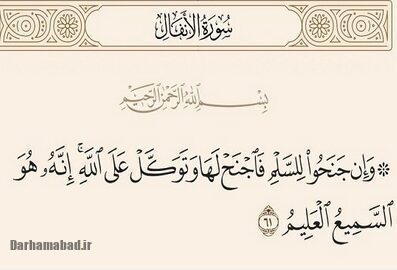 سُورَةُ الأَنفَالِ
بِسْمِ اللَّهِ الرَّحْمَٰنِ الرَّحِيمِ
۞ وَإِن جَنَحُوا۟ لِلسَّلْمِ فَٱجْنَحْ لَهَا وَتَوَكَّلْ عَلَى ٱللَّهِ ۚ إِنَّهُۥ هُوَ
ٱلسَّمِيعُ ٱلْعَلِيمُ ٦١
Darhamabad.ir